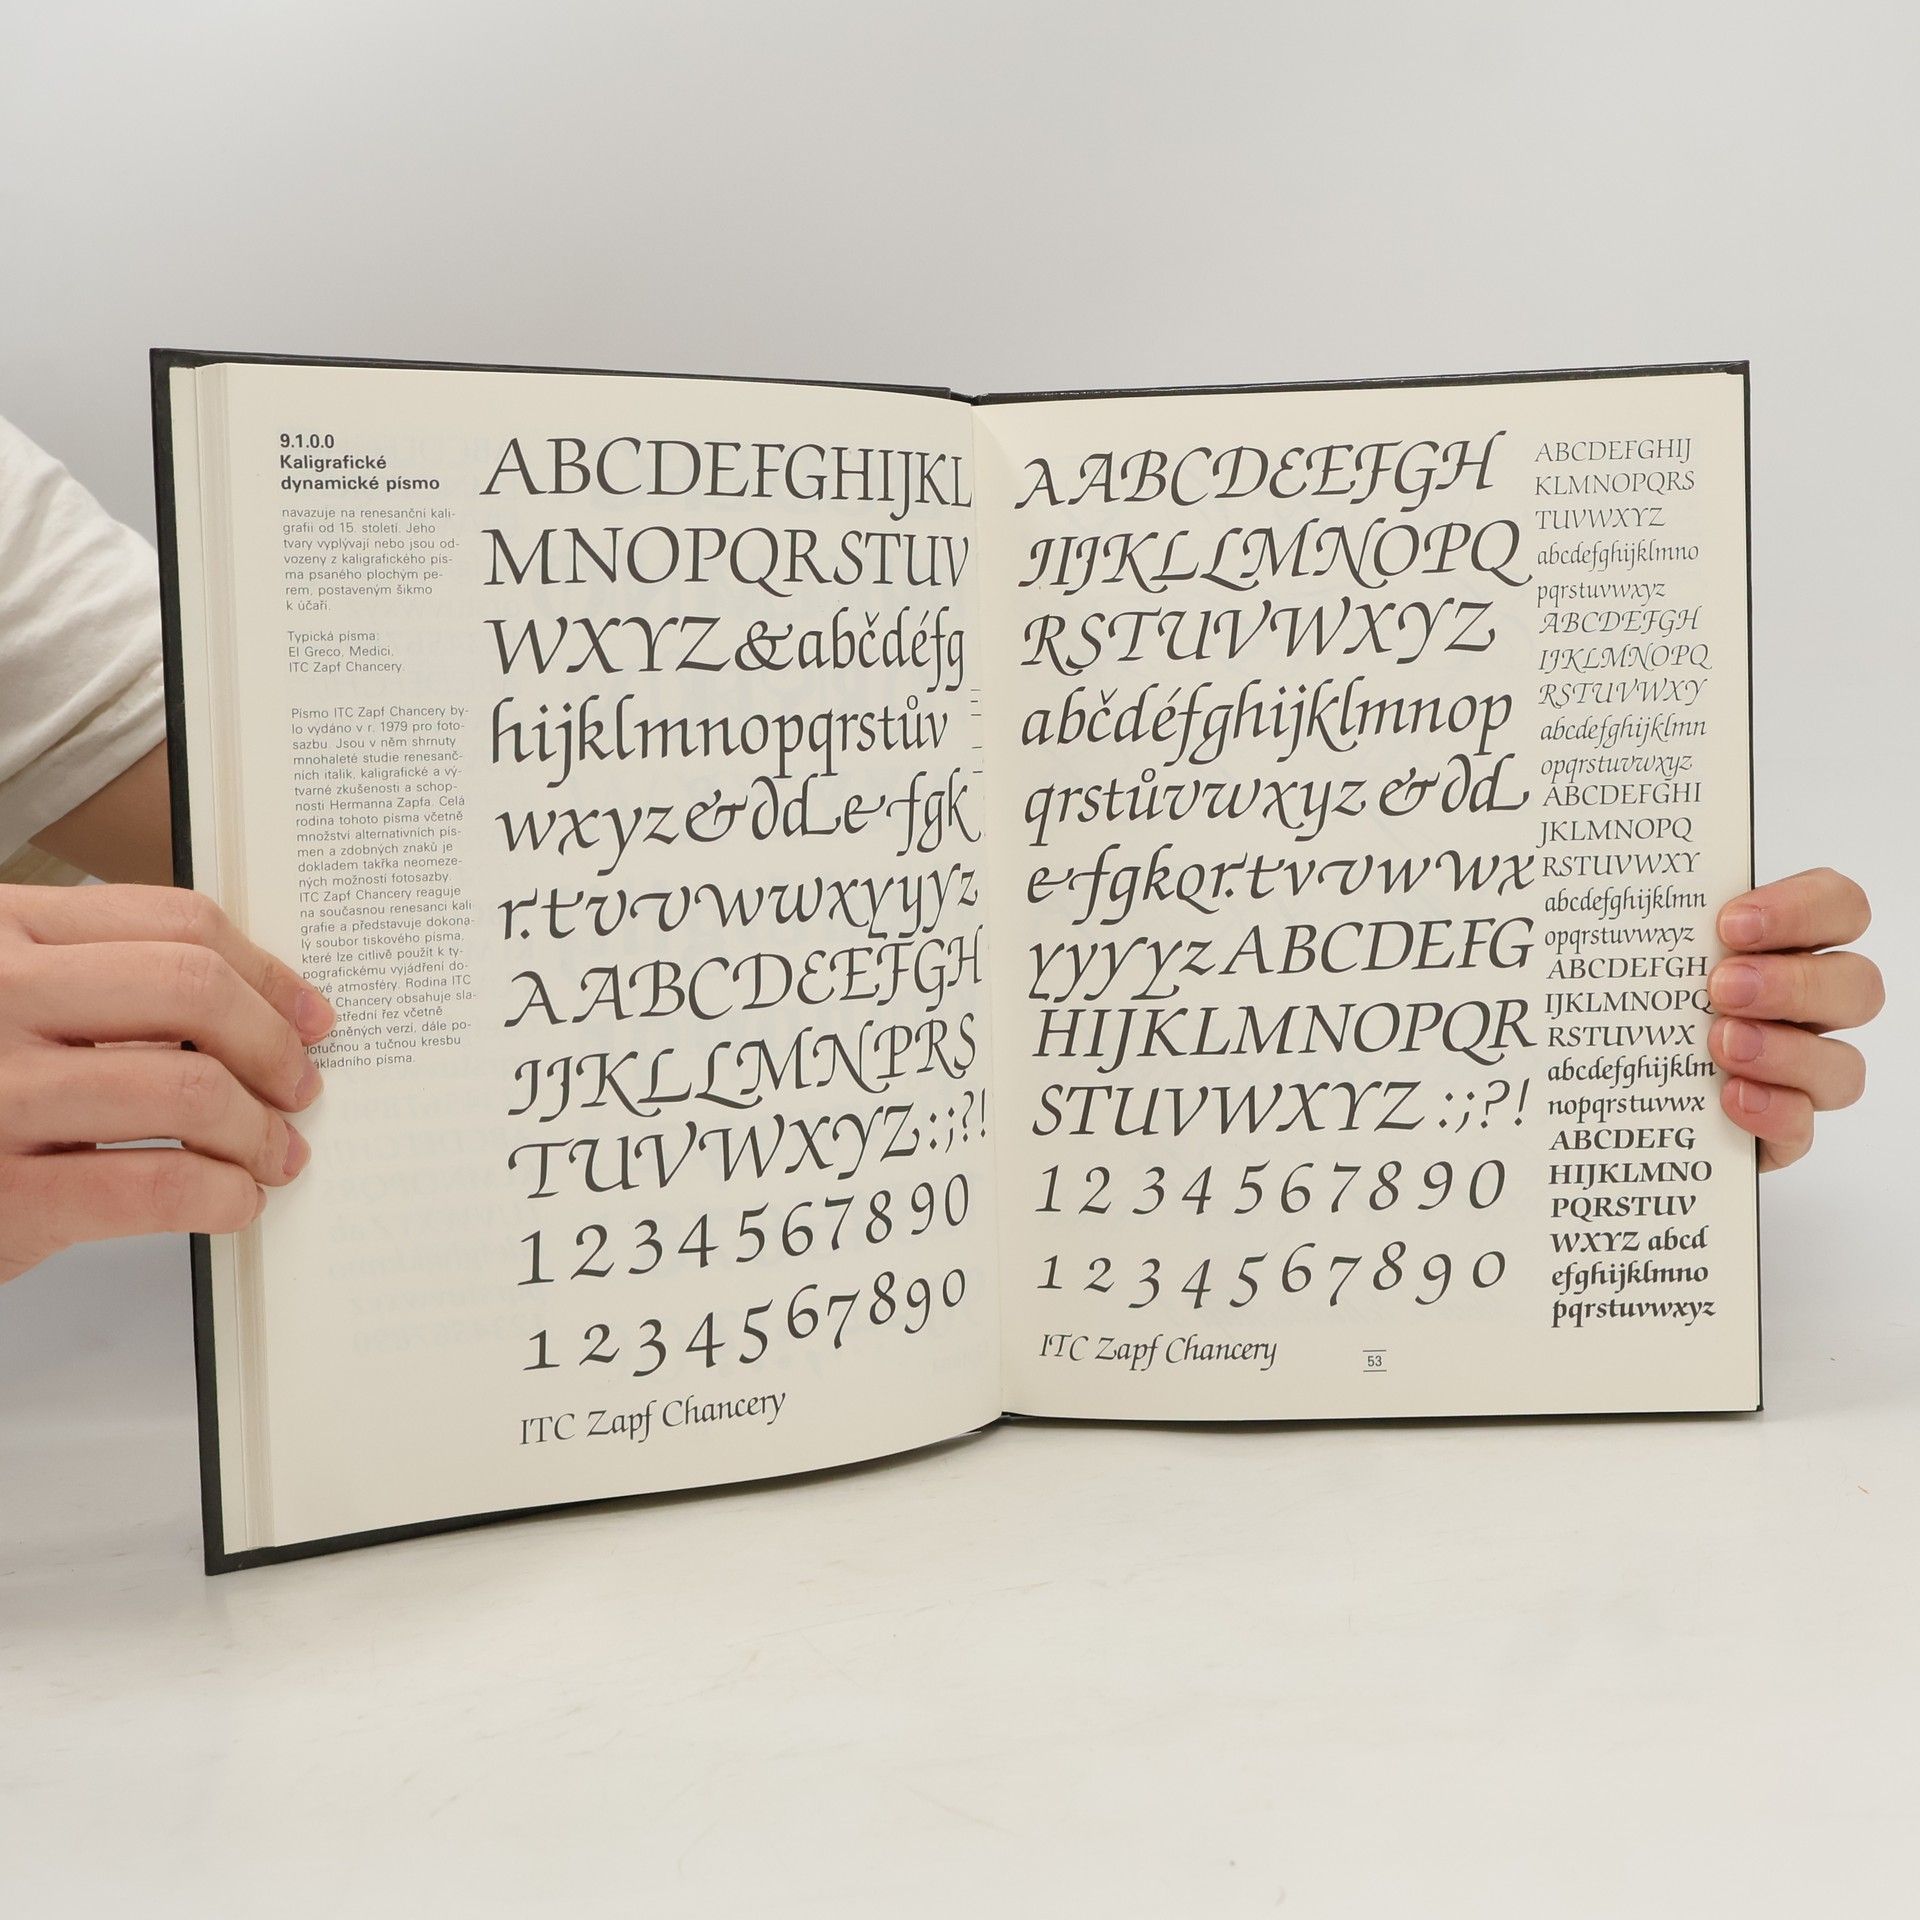 9.1.0.0
Kaligrafické
dynamické písmo
navazuje na renesanční kali-
grafii od 15. století. Jeho
tvary vyplývají nebo jsou od-
vozeny z kaligrafického pís-
ma psaného plochým pe-
rem, postaveným šikmo
k účaří.
Typická písma:
El Greco, Medici,
ITC Zapf Chancery.
Písmo ITC Zapf Chancery by-
lo vydáno v r. 1979 pro foto-
sazbu. Jsou v něm shrnuty
mnohaleté studie renesanč-
ních italik, kaligrafické a vý-
tvarné zkušenosti a schop-
nosti Hermanna Zapfa. Celá
rodina tohoto písma včetně
množství alternativních pís-
men a zdobných znaků je
dokladem takřka neomeze-
ných možností fotosazby.
ITC Zapf Chancery reaguje
na současnou renesanci kali-
grafie a představuje dokona-
lý soubor tiskového písma,
které lze citlivě použít k ty-
pografickému vyjádření do-
atmosféry. Rodina ITC
Chancery obsahuje sla-
střední řez včetně
verzí, dále po-
lotučnou a tučnou kresbu
základního písma.
ABCDEFGHIJKL
MNOPQRSTUV
WXYZ&abčdéfg
hijklmnopqrstův
wxyz&ddefgk
r.tvvwwxyyyz
AABCDEEFGH
IJKLLMNPRS
TUVWXYZ:;?!
1234567890
1234567890
ITC Zapf Chancery
AABCDEEFGH
IJJKLLMNOPQ
RSTUVWXYZ
abčdéfghijklmnop
qrstůvwxyz&dd
efgkqr.tvvwwx
yyyyzABCDEFG
HIJKLMNOPQR
STUVWXYZ:;?!
1234567890
1234567890
ITC Zapf Chancery
53
ABCDEFGHIJ
KLMNOPQRS
TUVWXYZ
abcdefghijklmno
pqrstuvwxyz
ABCDEFGH
IJKLMNOPQ
RSTUVWXY
abcdefghijklmn
opqrstuvwxyz
ABCDEFGHI
JKLMNOPQ
RSTUVWXY
abcdefghijklmn
opqrstuvwxyz
ABCDEFGH
IJKLMNOPQ
RSTUVWX
abcdefghijklm
nopqrstuvwx
ABCDEFG
HIJKLMNO
PQRSTUV
WXYZ abcd
efghijklmno
pqrstuvwxyz